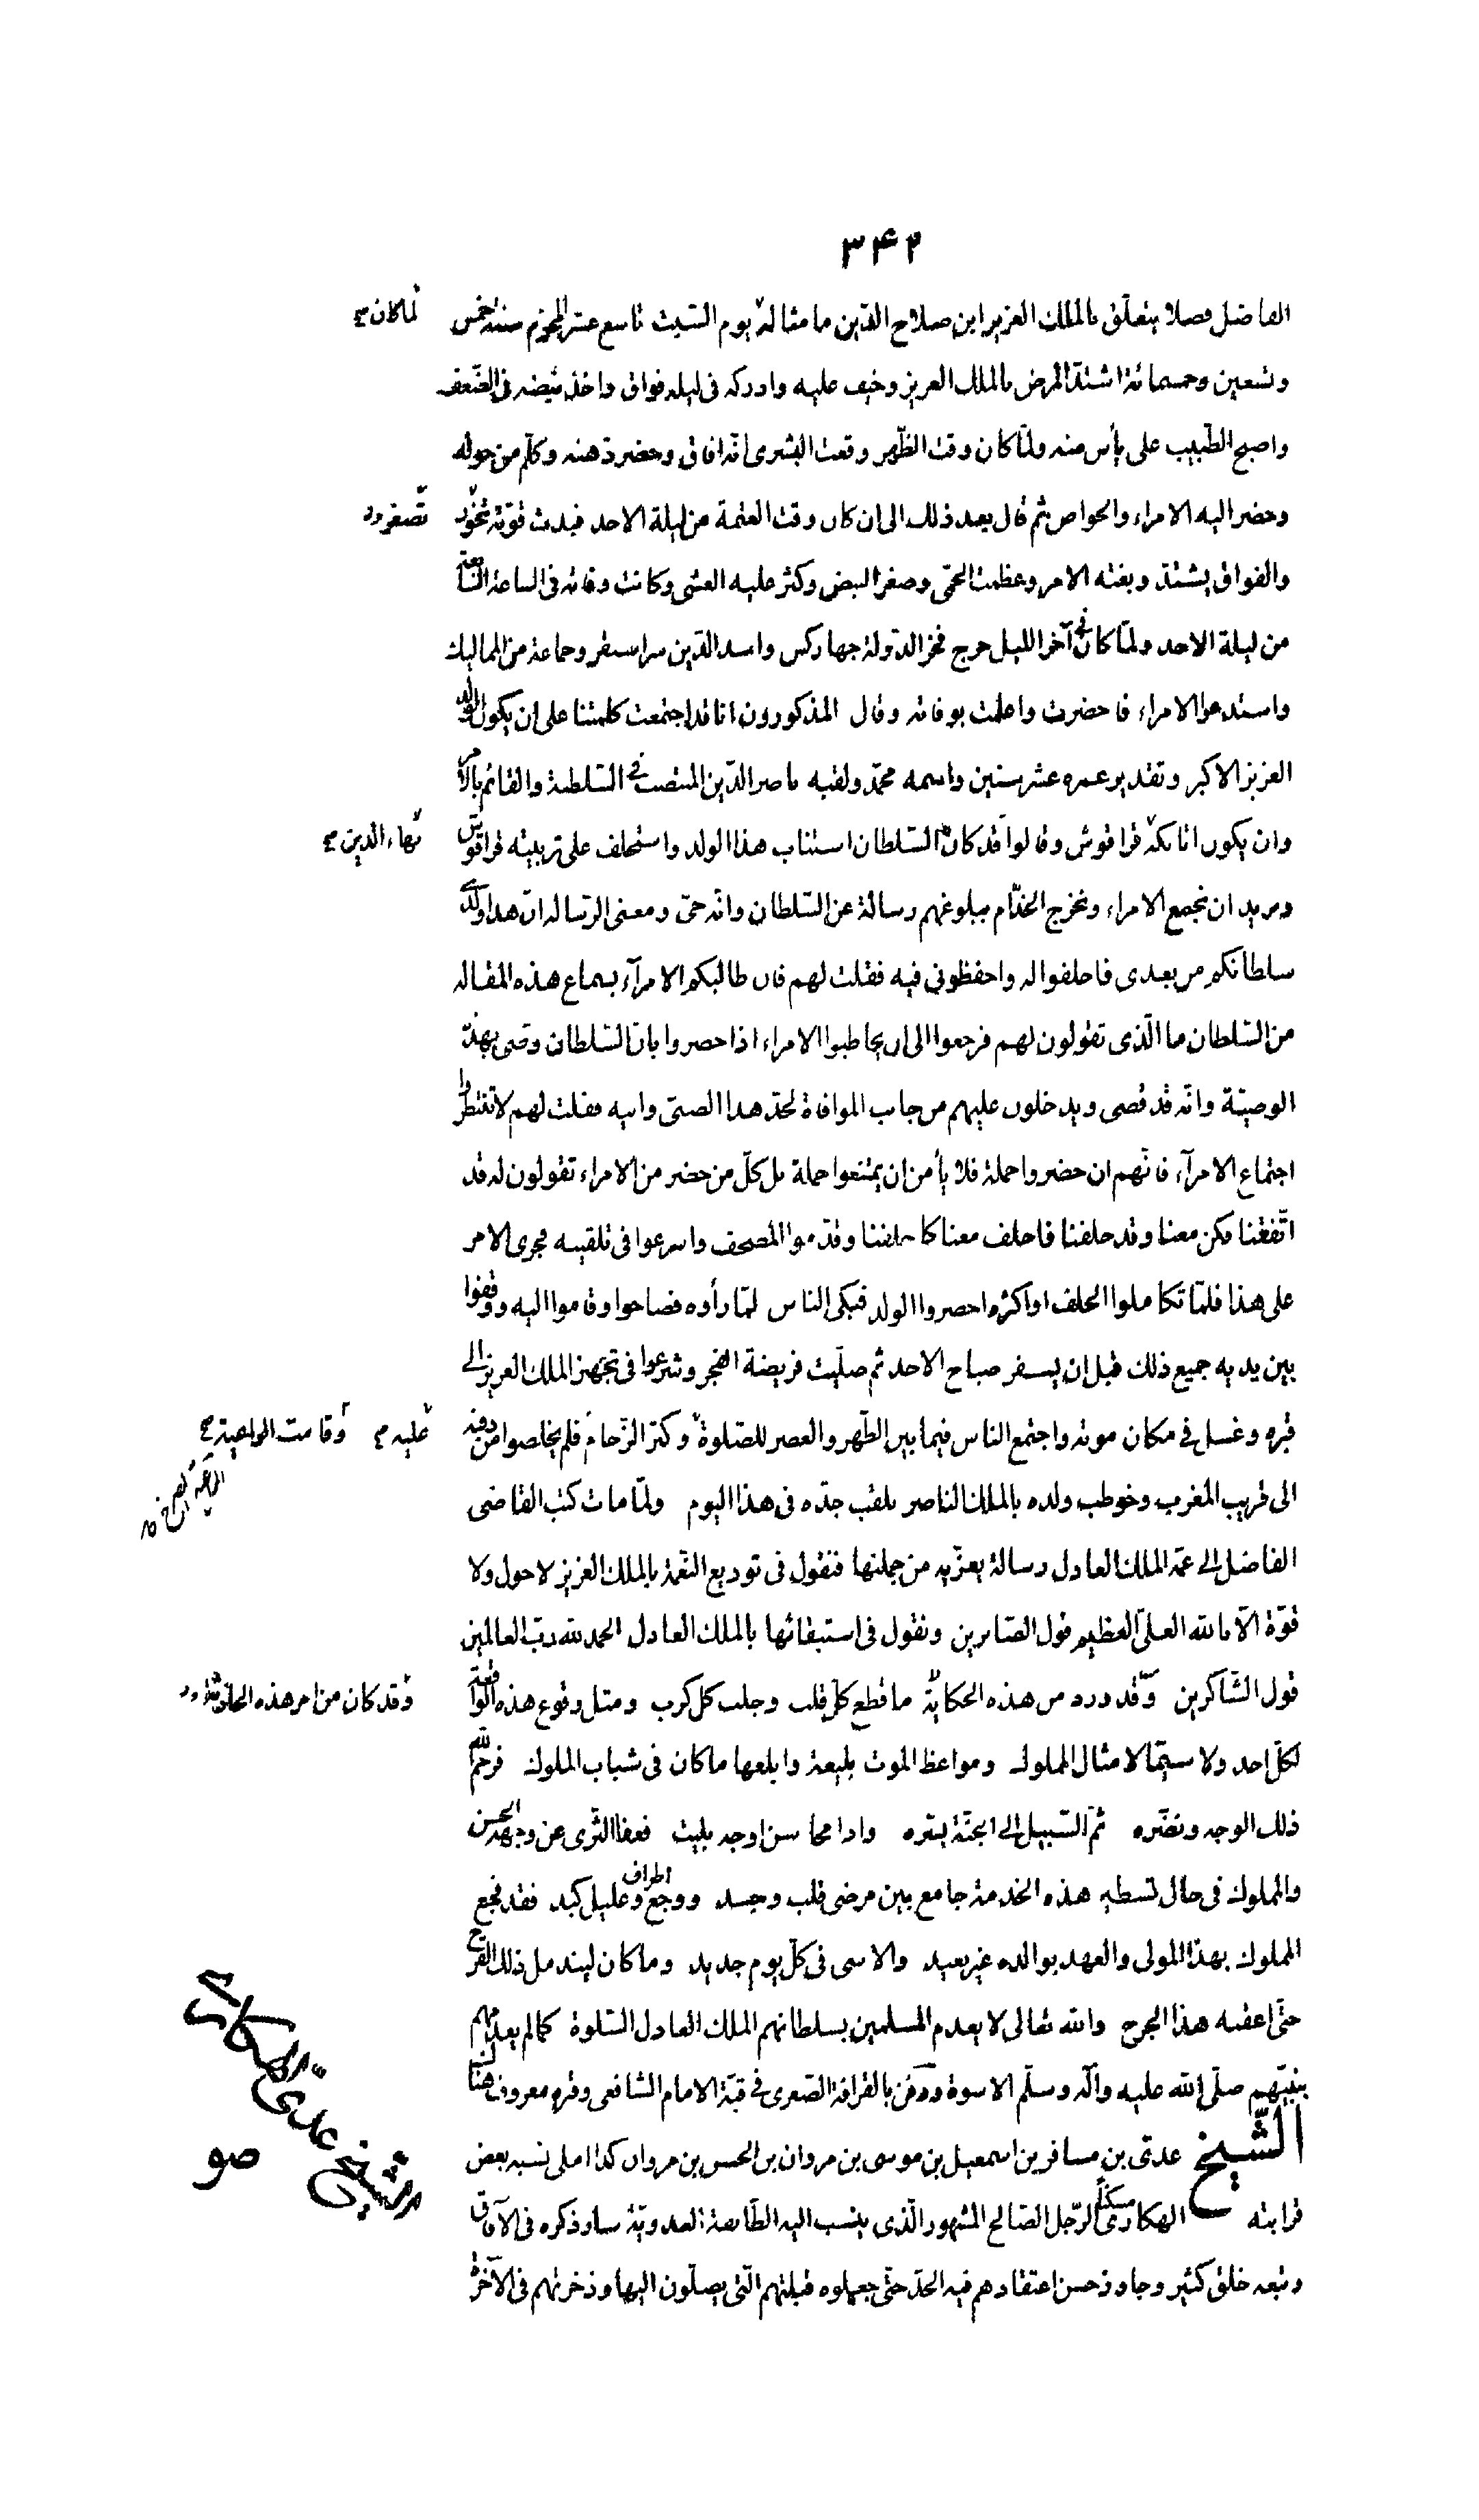 ٣٤٢
الفاضل فصلا يتعلّق بالملك العزيز ابن صلاح الدّين ما مثاله يوم السّبت تاسع عشر المحرّم سنة خمس
لما كان
وتسعين وخمسمائة اشتدّ المرض بالملك العزيز وخيف عليه وادركه فى ليله فواق واخذ نبضه فى الضّعف
واصبح الطّبيب على يأس منه ولمّا كان وقت الظّهر وقعت البشرى انّه افاق وحضر ذهنه وكلّم من حوله
وحضر اليه الامراء والخواص ثم قال بعد ذلك الى ان كان وقت العتمة من ليلة الاحد فبدت قوّته تخور
تصغر
والفواق يشتدّ وبغته الامر وعظمت الحمّى وصغر النبض وكثر عليه الغشى وكانت وفاته فى الساعة التاسعة
من ليلة الاحد ولمّا كان فى آخر الليل خرج فخر الدّولة جهاركس واسد الدّين سراسنقر وجماعة من المماليك
واستدعوا الامراء فاحضرت واعلمت بوفاته وقال المذكورون انا قد اجتمعت كلمتنا على ان يكون الولد
العزيز الاكبر وتقدير عمره عشر سنين واسمه محمّد ولقبه ناصر الدّين المنتصب فى السّلطنة والقائم بالامر
وان يكون اتابكه قراقوش وقالوا قد كان السّلطان استناب هذا الولد واستحلف على تربيته قراقوش
بهاء الدين
ونريد ان نجمع الامراء ونخرج الخدّام يبلوغهم رسالة عن السّلطان وانّه حىّ ومعنى الرّسالة انّ هذا ولدى
سلطانكم من بعدى فاحلفوا له واحفظونى فيه فقلت لهم فان طالبكم الامرآء بسماع هذه المقاله
من السّلطان ما الّذى تقولون لهم فرجعوا الى ان يخاطبوا الامراء اذا حضروا بانّ السّلطان وصّى بهذه
الوصيّة وانّه قد قضى ويدخلون عليهم من جانب الموافاة لجدّ هذا الصبىّ وابيه فقلت لهم لا تنتظروا
اجتماع الامرآء فانّهم ان حضروا جملة فلا يأمن ان يمتنعوا جملة بل كلّ من حضر من الامراء تقولون له قد
اتّفقنا فكن معنا وقد حلفنا فاحلف معنا كما حلفنا وقدّموا المصحف واسرعوا فى تلقينه فجرى الامر
على هذا فلمّا تكاملوا الحلف او اكثره احضروا الولد فبكى الناس لمّا رأوه فصاحوا وقاموا اليه ووقفوا
بين يديه جميع ذلك قبل ان يسفر صباح الاحد ثم صلّيت فريضة الفجر وشرعوا فى تجهيز الملك العزيز الى
قبره وغسل فى مكان موته واجتمع الناس فيما بين الظّهر والعصر للصّلوة وكثر الزّحام فلم يخلصوا من دفنه
عليه وقامت الواعية
الى قريب المغرب وخوطب ولده بالملك الناصر بلقب جدّه فى هذا اليوم ولمّا مات كتب القاضى
الفاضل الى عمّه الملك العادل رسالة يعزّيه من جملتها فنقول فى توديع النّعمة بالملك العزيز لا حول ولا
قوّة الّا بالله العلىّ العظيم قول الصّابرين ونقول فى استبقائها بالملك العادل الحمد لله ربّ العالمين
قول الشّاكرين وقد ورد من هذه الحكاية ما قطع كلّ قلب وجلب كل كرب ومثل وقوع هذه الواقعة
وقد كان من امر هذه الحادثة
لكلّ احد ولا سيّما لامثال المملوك ومواعظ الموت بليغة وابلغها ما كان فى شباب الملوك فرحم الله
ذلك الوجه ونضّره ثمّ السّبيل الى الجنّة يسّره واذا محاسن اوجه بليت فعفا الثّرى عن وجهه الحسن
والمملوك فى حال تسطير هذه الخدمة جامع بين مرضى قلب وجسد ووجع اطراف وعليل كبد فقد فجع
المملوك بهذا المولى والعهد بوالده غير بعيد والاسى فى كلّ يوم جديد وما كان ليندمل ذلك القرح
حتّى اعقبه هذا الجرح والله تعالى لا يعدم المسلمين بسلطانهم الملك العادل السّلوة كما لم يعدمهم
بنبيّهم صلّى الله عليه وآله وسلّم الاسوة ودفن بالقرافة الصّغرى فى قبّة الامام الشافعى وقبره معروف هناك
الشّيخ عدىّ بن مسافر بن اسمعيل بن موسى بن مروان بن الحسن بن مروان كذا املى نسبه بعض
الشيخ عدى الهكارى
صو
قرابته الهكارى مسكنا الرّجل الصّالح المشهور الّذى ينسب اليه الطّايفة العدويّة سار ذكره فى الآفاق
وتبعه خلق كثير وجاوز حسن اعتقادهم فيه الحدّ حتّى جعلوه قبلتهم الّتى يصلّون اليها وذخرتهم فى الآخرة